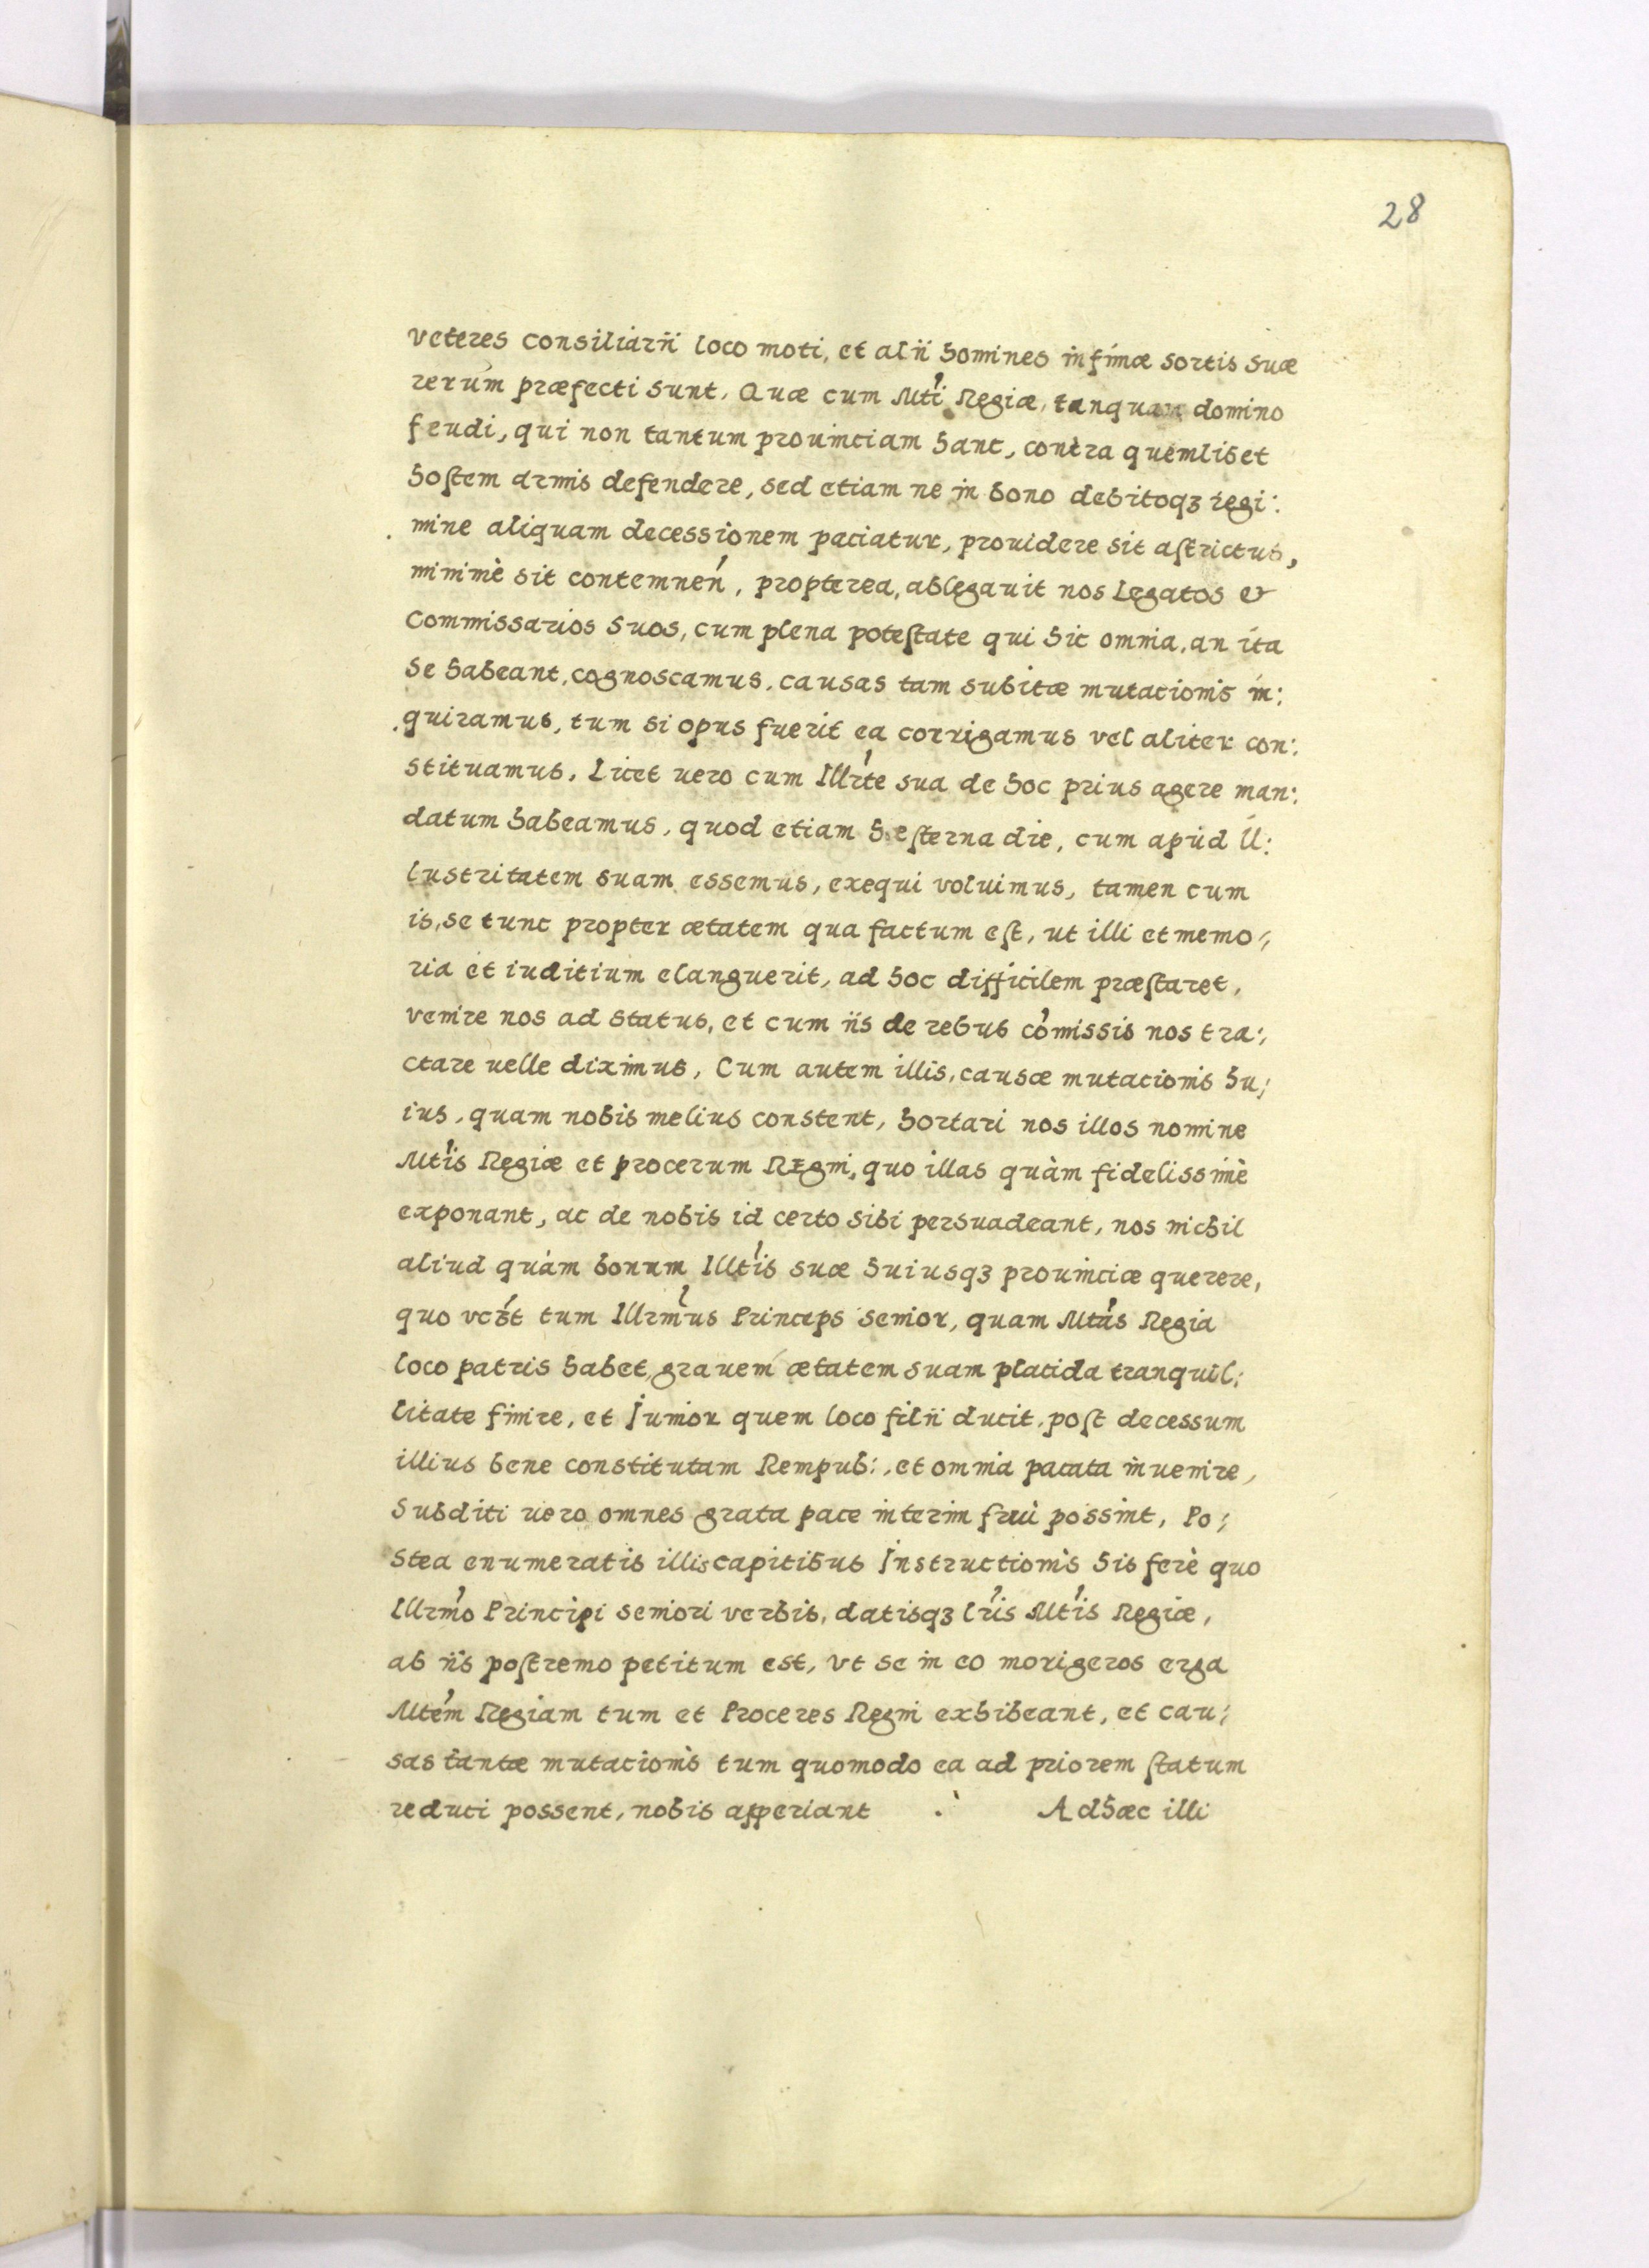 28
veteres consiliarii loco moti, et alii homines infimæ sortis suæ
rerum præfecti sunt. Quæ cum Mti Regiæ, tanquam domino
feudi, qui non tantum prouinciam hanc, contra quemlibet
hostem armis defendere, sed etiam ne in bono debitoqȝ regi:
mine aliquam decessionem paciatur, prouidere sit astrictus,
minimè sit contemnen, propterea, ablegauit nos Legatos &
Commissarios suos, cum plena potestate qui hic omnia, an ita
se habeant, cognoscamus, causas tam subitæ mutacionis in:
quiramus, tum si opus fuerit ea corrigamus vel aliter con:
stituamus. Licet uero cum Illrte sua de hoc prius agere man:
datum habeamus, quod etiam hesterna die, cum apud Il:
lustritatem suam essemus, exequi voluimus, tamen cum
is, se tunc propter ætatem qua factum est, ut illi et memo:
ria et iuditium elanguerit, ad hoc difficilem præstaret,
venire nos ad status, et cum iis de rebus comissis nos tra:
ctare uelle diximus, Cum autem illis, causæ mutacionis hu:
ius, quam nobis melius constent, hortari nos illos nomine
Mtis Regiæ et procerum Regni, quo illas quàm fidelissimè
exponant, ac de nobis id certo sibi persuadeant, nos nichil
aliud quàm bonum Illtis suæ huiusqȝ prouinciæ querere,
quo tum Illrmus Princeps senior, quam Mtas Regia
loco patris habet, grauem ætatem suam placida tranquil:
litate finire, et Junior quem loco filii ducit, post decessum
illius bene constitutam Rempub:, et omnia pacata inuenire,
Subditi uero omnes grata pace interim frui possint, Po:
stea enumeratis illis capitibus Instructionis his ferè quo
Illrmo Principi seniori verbis, datisqȝ lris Mtis Regiæ,
ab iis postremo petitum est, vt se in eo morigeros erga
Mtem Regiam tum et Proceres Regni exhibeant, et cau:
sas tantæ mutacionis tum quomodo ea ad priorem statum
reduci possent, nobis apperiant . Ad hæc illi